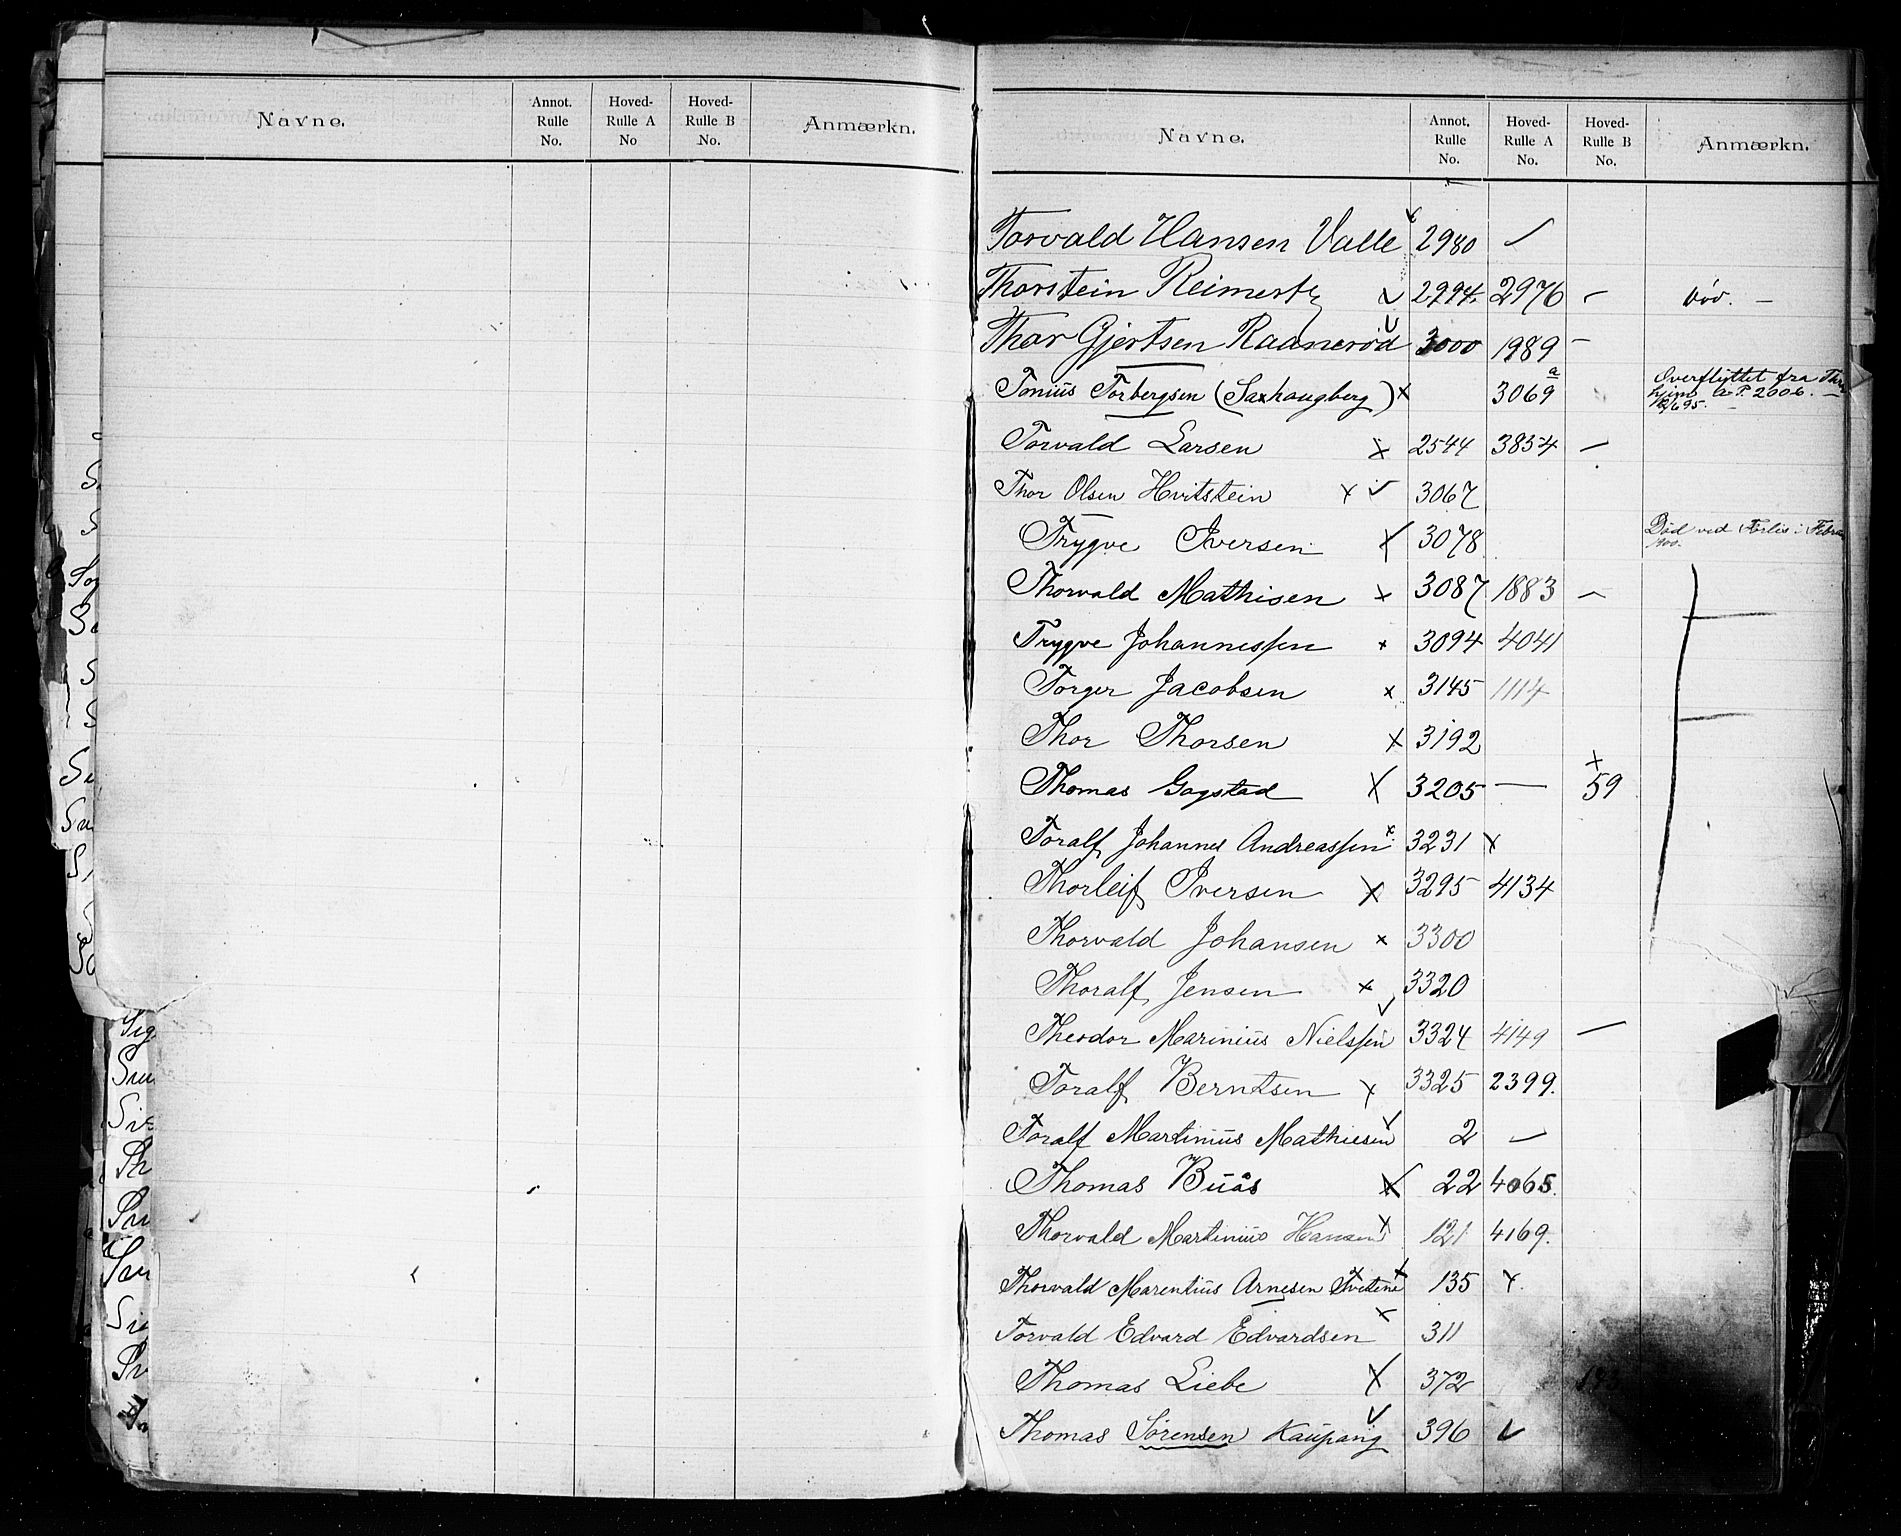 Navne. Annot. Rulle No. Hoved-Rulle A No Hoved-Rulle B No. Anmærkn.
Navne. Annot. Rulle No. Hoved-Rulle A No. Hoved-Rulle B No. Anmærkn.
Torvald Hansen Valle 2980 ✓
Thorstein Reimertz ✓ 2994. 2976 – død. –
Thor Gjertsen Raanerød ✓ 3000 1989 –
Tonius Torbergsen (Saxhaugberg) x 3069 a Overflyttet fra
hjem A. P. 2006. –
Torvald Larsen x 2544 3854 –
Thor Olsen Hvitstein x ✓ 3067
Trygve Iversen x 3078 Død ved Forlis i Febru
1900.
Thorvald Mathisen x 3087 1883 –
Trygve Johannessen x 3094 4041
Torger Jacobsen x 3145 1114
Thor Thorsen x 3192
Thomas Gogstad x 3205 — x 59
Toralf Johannes Andreassen x 3231 x
Thorleif Iversen x 3295 4134
Thorvald Johansen x 3300
Thoralf Jensen x 3320
Theodor Marinius Nielssen ✓ 3324 4149 –
Toralf Berntsen x 3325 2399.
Toralf Martinius Mathiesen ✓ 2 –
Thomas Buås x 22 4065.
Thorvald Martinius Hansen x 121 4169.
Thorvald Marentius Arnesen Tvetene x 135 x
Torvald Edvard Edvardsen x 311
Thomas Liebe x 372 193
Thomas Sørensen Kaupang ✓ 396 ✓